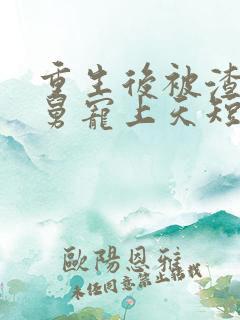 重生後被渣
舅寵上天短
歐陽恩雅
未经同意禁止转载